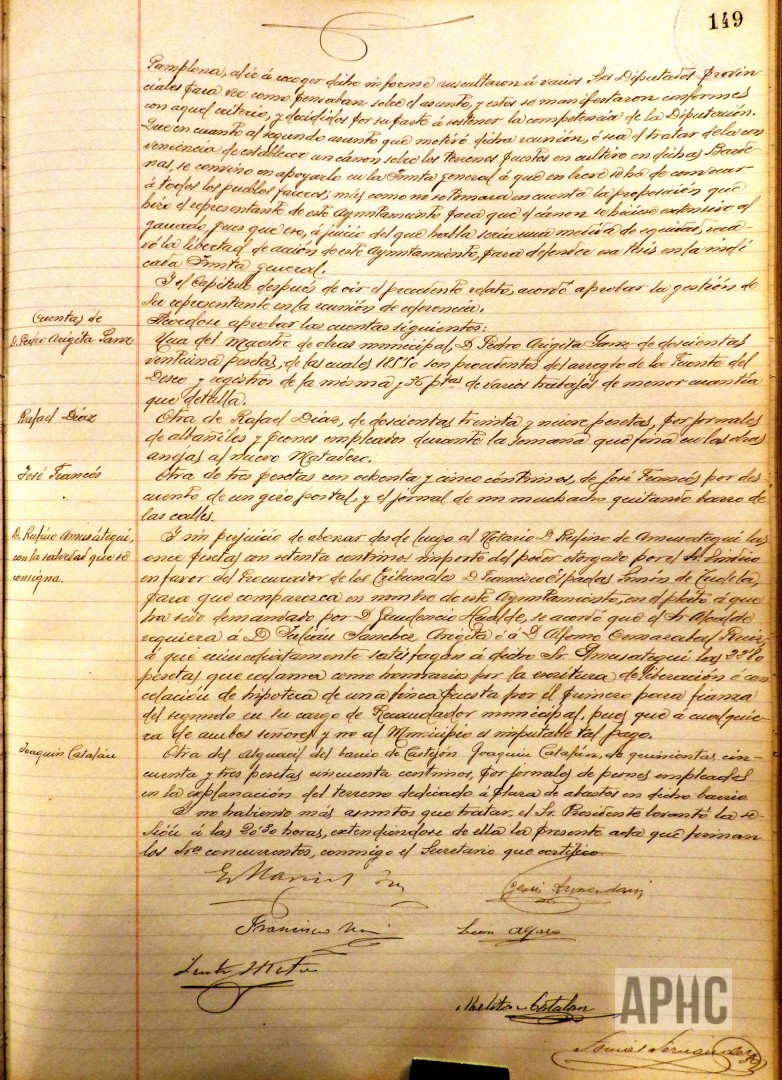 149
Pamplona, al ir á recoger dicho informe auscultaron á varios Sres Diputados provin-
ciales para ver como pensaban sobre el asunto, y estos se manifestaron conformes
con aquel criterio, y decididos por su parte á sostener la competencia de la Diputación.
Que en cuanto al segundo asunto que motivó dicha reunión, ó sea el tratar de la con
veniencia de establecer un cánon sobre los terrenos puestos en cultivo en dichas Barde-
nas, se convino en apoyarlo en la Junta general á que en breve se ha de convocar
á todos los pueblos faceros; más como no se tomara en cuenta la proposición que
hizo el representante de este Ayuntamiento para que el cánon se hiciese extensivo al
ganado, pues que eso, á juicio del que habla sería una medida de equidad, reca-
vó la libertad de acción de este Ayuntamiento, para defender esa tésis en la indi
cada Junta general.
Y el Capitular después de oir el precedente relato, acordó aprobar la gestión de
su representante en la reunión de referencia.
Acordose aprobar las cuentas siguientes:
Cuentas de
D. Pedro Arigita Sanz
Una del Maestro de obras municipal, D. Pedro Arigita Sanz de doscientas
veintiuna pesetas, de las cuales son procedentes del arreglo de la Fuente del
Oseo y registros de la misma y 36 ptas de varios trabajos de menor cuantía
que detalla.
Rafael Díaz
Otra de Rafael Díaz, de doscientas treinta y nueve pesetas, por jornales
de albañiles y peones empleados durante la semana que fina en las obras
anejas al nuevo Matadero.
José Francés
Otra de tres pesetas con ochenta y cinco céntimos, de José Francés por des-
cuento de un giro postal, y el jornal de un muchacho quitando barro de
las calles.
D. Rufino Amusátegui,
con la salvedad que se
consigna.
Y sin perjuicio de abonar desde luego al Notario D. Rufino de Amusategui las
once pesetas con setenta centimos importe del poder otorgado por el Sr. Síndico
en favor del Procurador de los Tribunales D. Francisco Espadas Simón de Tudela
para que comparezca en nombre de este Ayuntamiento, en el pleito á que
ha sido demandado por D. Prudencio Hualde, se acordó que el Sr. Alcalde
requiera á D. Julián Sánchez Arigita ó á D. Alfonso
á que inmediatamente satisfagan á dicho Sr. Amusategui las
pesetas que reclama como honorario por la escritura de liberación ó can
celación de hipoteca de una finca puesta por el primero para fianza
del segundo en su cargo de Recaudador municipal, pues que á cualquie-
ra de ambos señores y no al Municipio es imputable tal pago.
Joaquín Catalán
Otra del Alguacil del barrio de Castejón Joaquín Catalán, de quinientas cin-
cuenta y tres pesetas cincuenta centimos, por jornales de peones empleados
en la explanación del terreno dedicado á plaza de abastos en dicho barrio
Y no habiendo más asuntos que tratar, el Sr. Presidente levantó la se-
sión á las 20'30 horas, extendiéndose de ella la presente acta que firman
los Sres concurrentes, conmigo el Secretario que certifico.
Francisco
León Alfaro
Meliton Catalan
APHC